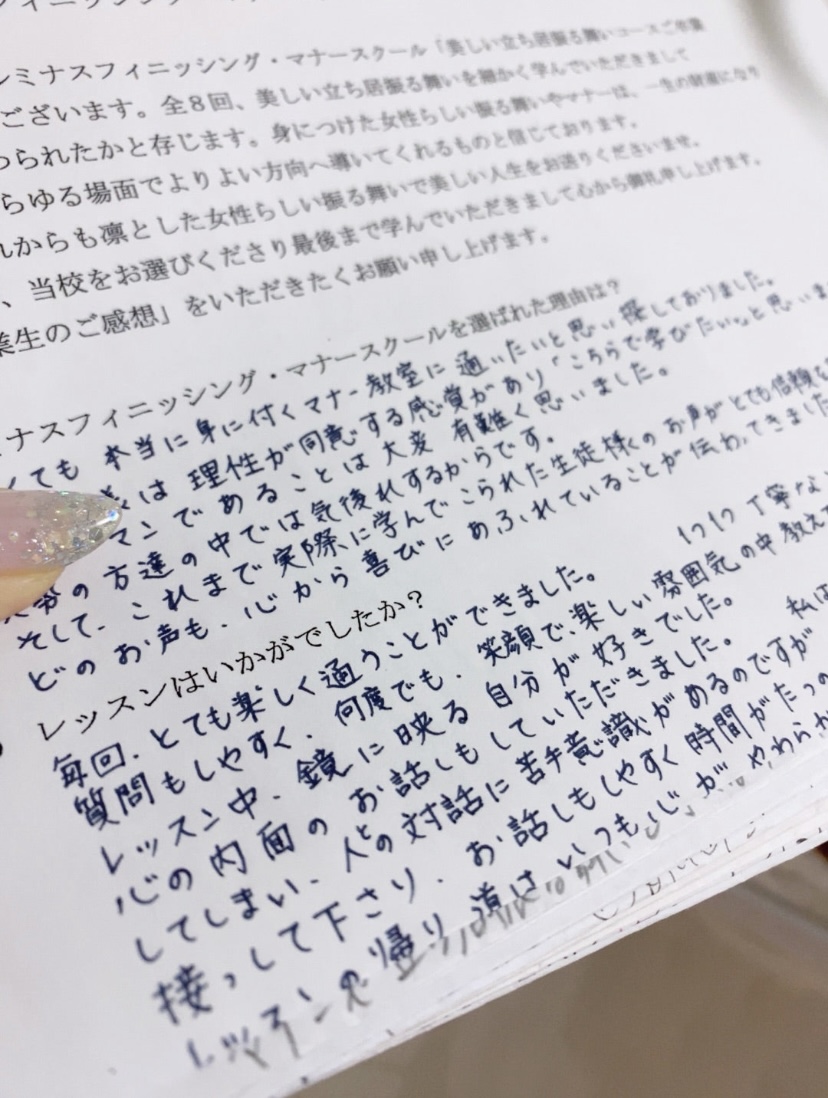 ルミナスフィニッシング・マナースクール「美しい立ち居振る舞いコースご卒業
ございます。全8回、美しい立ち居振る舞いを細かく学んでいただきまして
わられたかと存じます。身につけた女性らしい振る舞いやマナーは、一生の財産になり
らゆる場面でよりよい方向へ導いてくれるものと信じております。
れからも凛とした女性らしい振る舞いで美しい人生をお送りくださいませ。
、当校をお選びくださり最後まで学んでいただきまして心から御礼申し上げます。
業生のご感想」をいただきたくお願い申し上げます。
ミナスフィニッシング・マナースクールを選ばれた理由は?
ても 本当に身に付くマナー教室に 通いたいと思い 探しておりました。
は 理性が同意する感覚があり「こちらで学びたい。」と思い
マンであることは 大変 有難く思いました。
の方達の中では気後れするからです。
そして、これまで実際に学んでこられた生徒様の お声がとても信頼
どの お声も、心から喜びにあふれていることが伝わってきました
レッスンはいかがでしたか?
毎回、とても楽しく通うことができました。 1つ1つ丁寧な
質問もしやすく、何度でも、笑顔で、楽しい雰囲気の中教えて
レッスン中、鏡に映る 自分が 好きでした。
心の内面の お話しもしていただきました。 私は
してしまい、人との対話に苦手意識があるのですが
接して下さり、お話しもしやすく時間がたつの
レッスンの帰り道は いつも心が やわらか